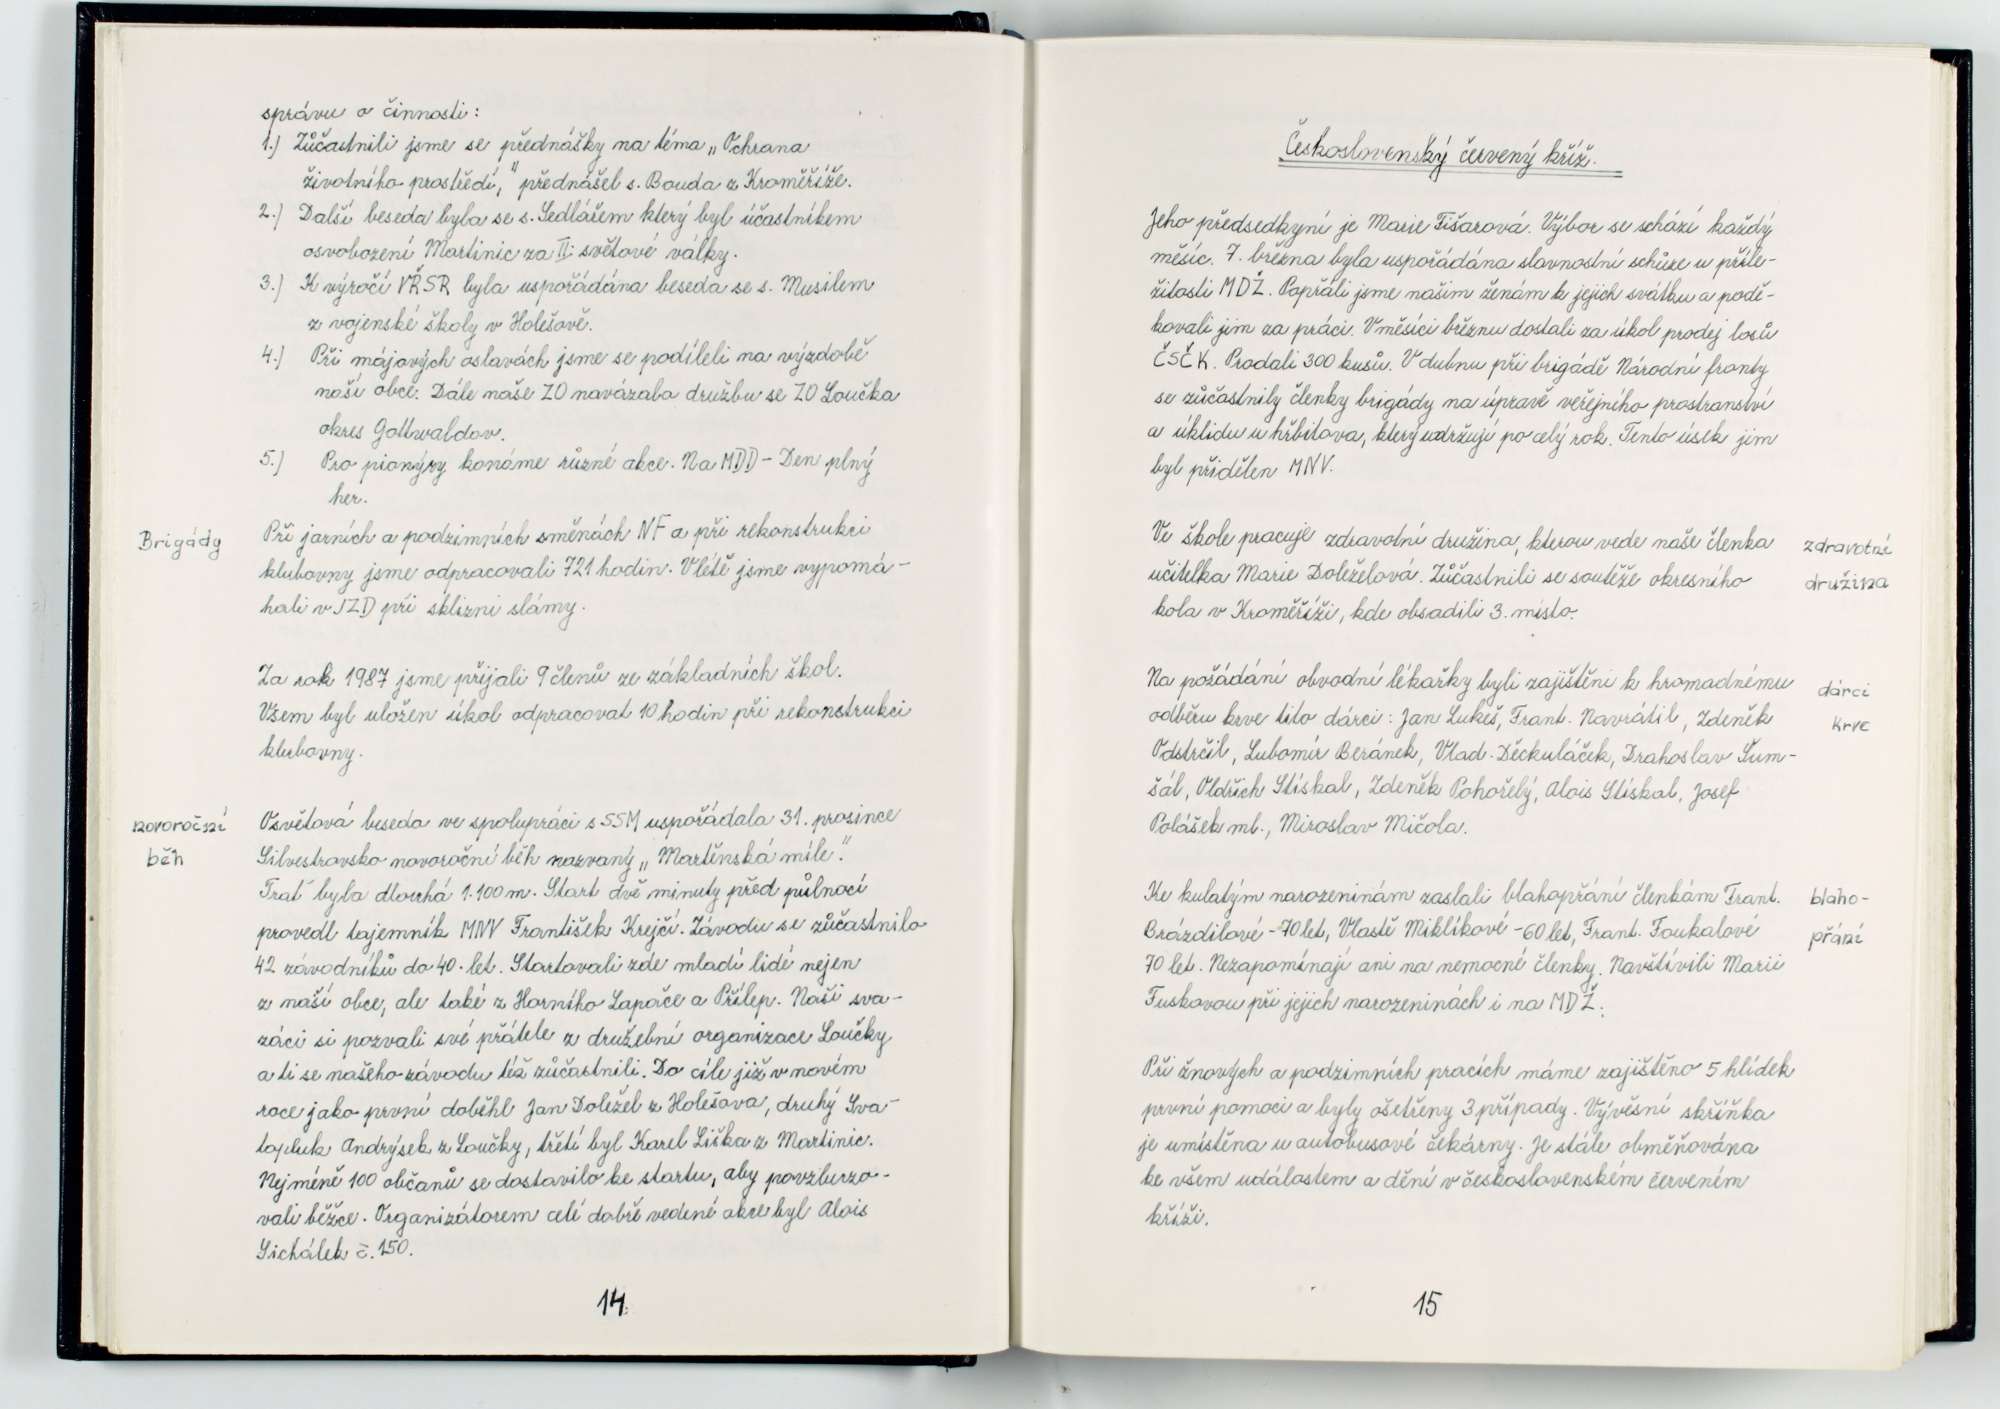 správu o činnosti:
1.) Zůčastnili jsme se přednášky na téma „Ochrana
životního prostředí," přednášel s. Bouda z Kroměříže.
2.) Další beseda byla se s. Sedlářem který byl účastníkem
osvobození Martinic za II. světové války.
3.) K výročí VŘSR byla uspořádána beseda se s. Musilem
z vojenské školy v Holešově.
4.) Při májových oslavách jsme se podíleli na výzdobě
naší obce. Dále naše ZO navázala družbu se ZO Loučka
okres Gottwaldov.
5.) Pro pionýry konáme různé akce. Na MDD - Den plný
her.
Brigády
Při jarních a podzimních směnách NF a při rekonstrukci
klubovny jsme odpracovali 721 hodin. V létě jsme vypomá-
hali v JZD při sklizni slámy.
Za rok 1987 jsme přijali 9 členů ze základních škol.
Všem byl uložen úkol odpracovat 10 hodin při rekonstrukci
klubovny.
novoroční
běh
Osvětová beseda ve spolupráci s SSM uspořádala 31. prosince
Silvestrovsko novoroční běh nazvaný „Martěnská míle".
Trať byla dlouhá 1.100 m. Start dvě minuty před půlnocí
provedl tajemník MNV František Krejčí. Závodu se zůčastnilo
42 závodníků do 40. let. Startovali zde mladí lidé nejen
z naší obce, ale také z Horního Lapače a Přílep. Naši sva-
záci si pozvali své přátele z družební organizace Loučky
a ti se našeho závodu též zůčastnili. Do cíle již v novém
roce jako první doběhl Jan Doležel z Holešova, druhý Sva-
topluk Andrýsek z Loučky, třetí byl Karel Liška z Martinic.
Nejméně 100 občanů se dostavilo ke startu, aby povzburzo-
vali běžce. Organizátorem celé dobře vedené akce byl Alois
Sichálek č. 150.
14.
Československý červený kříž.
Jeho předsedkyní je Marie Fišarová. Výbor se schází každý
měsíc. 7. března byla uspořádána slavnostní schůze u příle-
žitosti MDŽ. Popřáli jsme našim ženám k jejich svátku a podě-
kovali jim za práci. V měsíci březnu dostali za úkol prodej losů
ČSČK. Prodali 300 kusů. V dubnu při brigádě Národní fronty
se zůčastnily členky brigády na úpravě veřejného prostranství
a úklidu u hřbitova, který udržují po celý rok. Tento úsek jim
byl přidělen MNV.
Ve škole pracuje zdravotní družina, kterou vede naše členka
učitelka Marie Doleželová. Zůčastnili se soutěže okresního
kola v Kroměříži, kde obsadili 3. místo.
zdravotní
družina
Na požádání obvodní lékařky byli zajištěni k hromadnému
odběru krve tito dárci: Jan Lukeš, Frant. Navrátil, Zdeněk
Odstrčil, Lubomír Beránek, Vlad. Děckuláček, Drahoslav Šum-
šál, Oldřich Stískal, Zdeněk Pohořelý, Alois Stískal, Josef
Polášek ml., Miroslav Mičola.
dárci
krve
Ke kulatým narozeninám zaslali blahopřání členkám Frant.
Brázdilové - 70 let, Vlastě Miklíkové - 60 let, Frant. Foukalové
70 let. Nezapomínají ani na nemocné členky. Navštívili Marii
Fuskovou při jejich narozeninách i na MDŽ.
blaho-
přání
Při žnových a podzimních pracích máme zajištěno 5 hlídek
první pomoci a byly ošetřeny 3 případy. Vývěsní skříňka
je umístěna u autobusové čekárny. Je stále obměňována
ke všem událostem a dění v československém červeném
kříži.
15